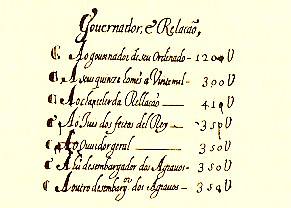 Gouernador, e Relacaõ,
Ao gouernador de seu Ordenado - 1200U
A seus quinze homẽs a Vinte mil - 300U
Ao chanseler da Rellação — 410U
Ao Juis dos feitos del Rey — 350U
Ao Ouuidor geral — 350U
A hũ desembargador dos Agrauos - 350U
A outro desembargor dos Agrauos - 350U